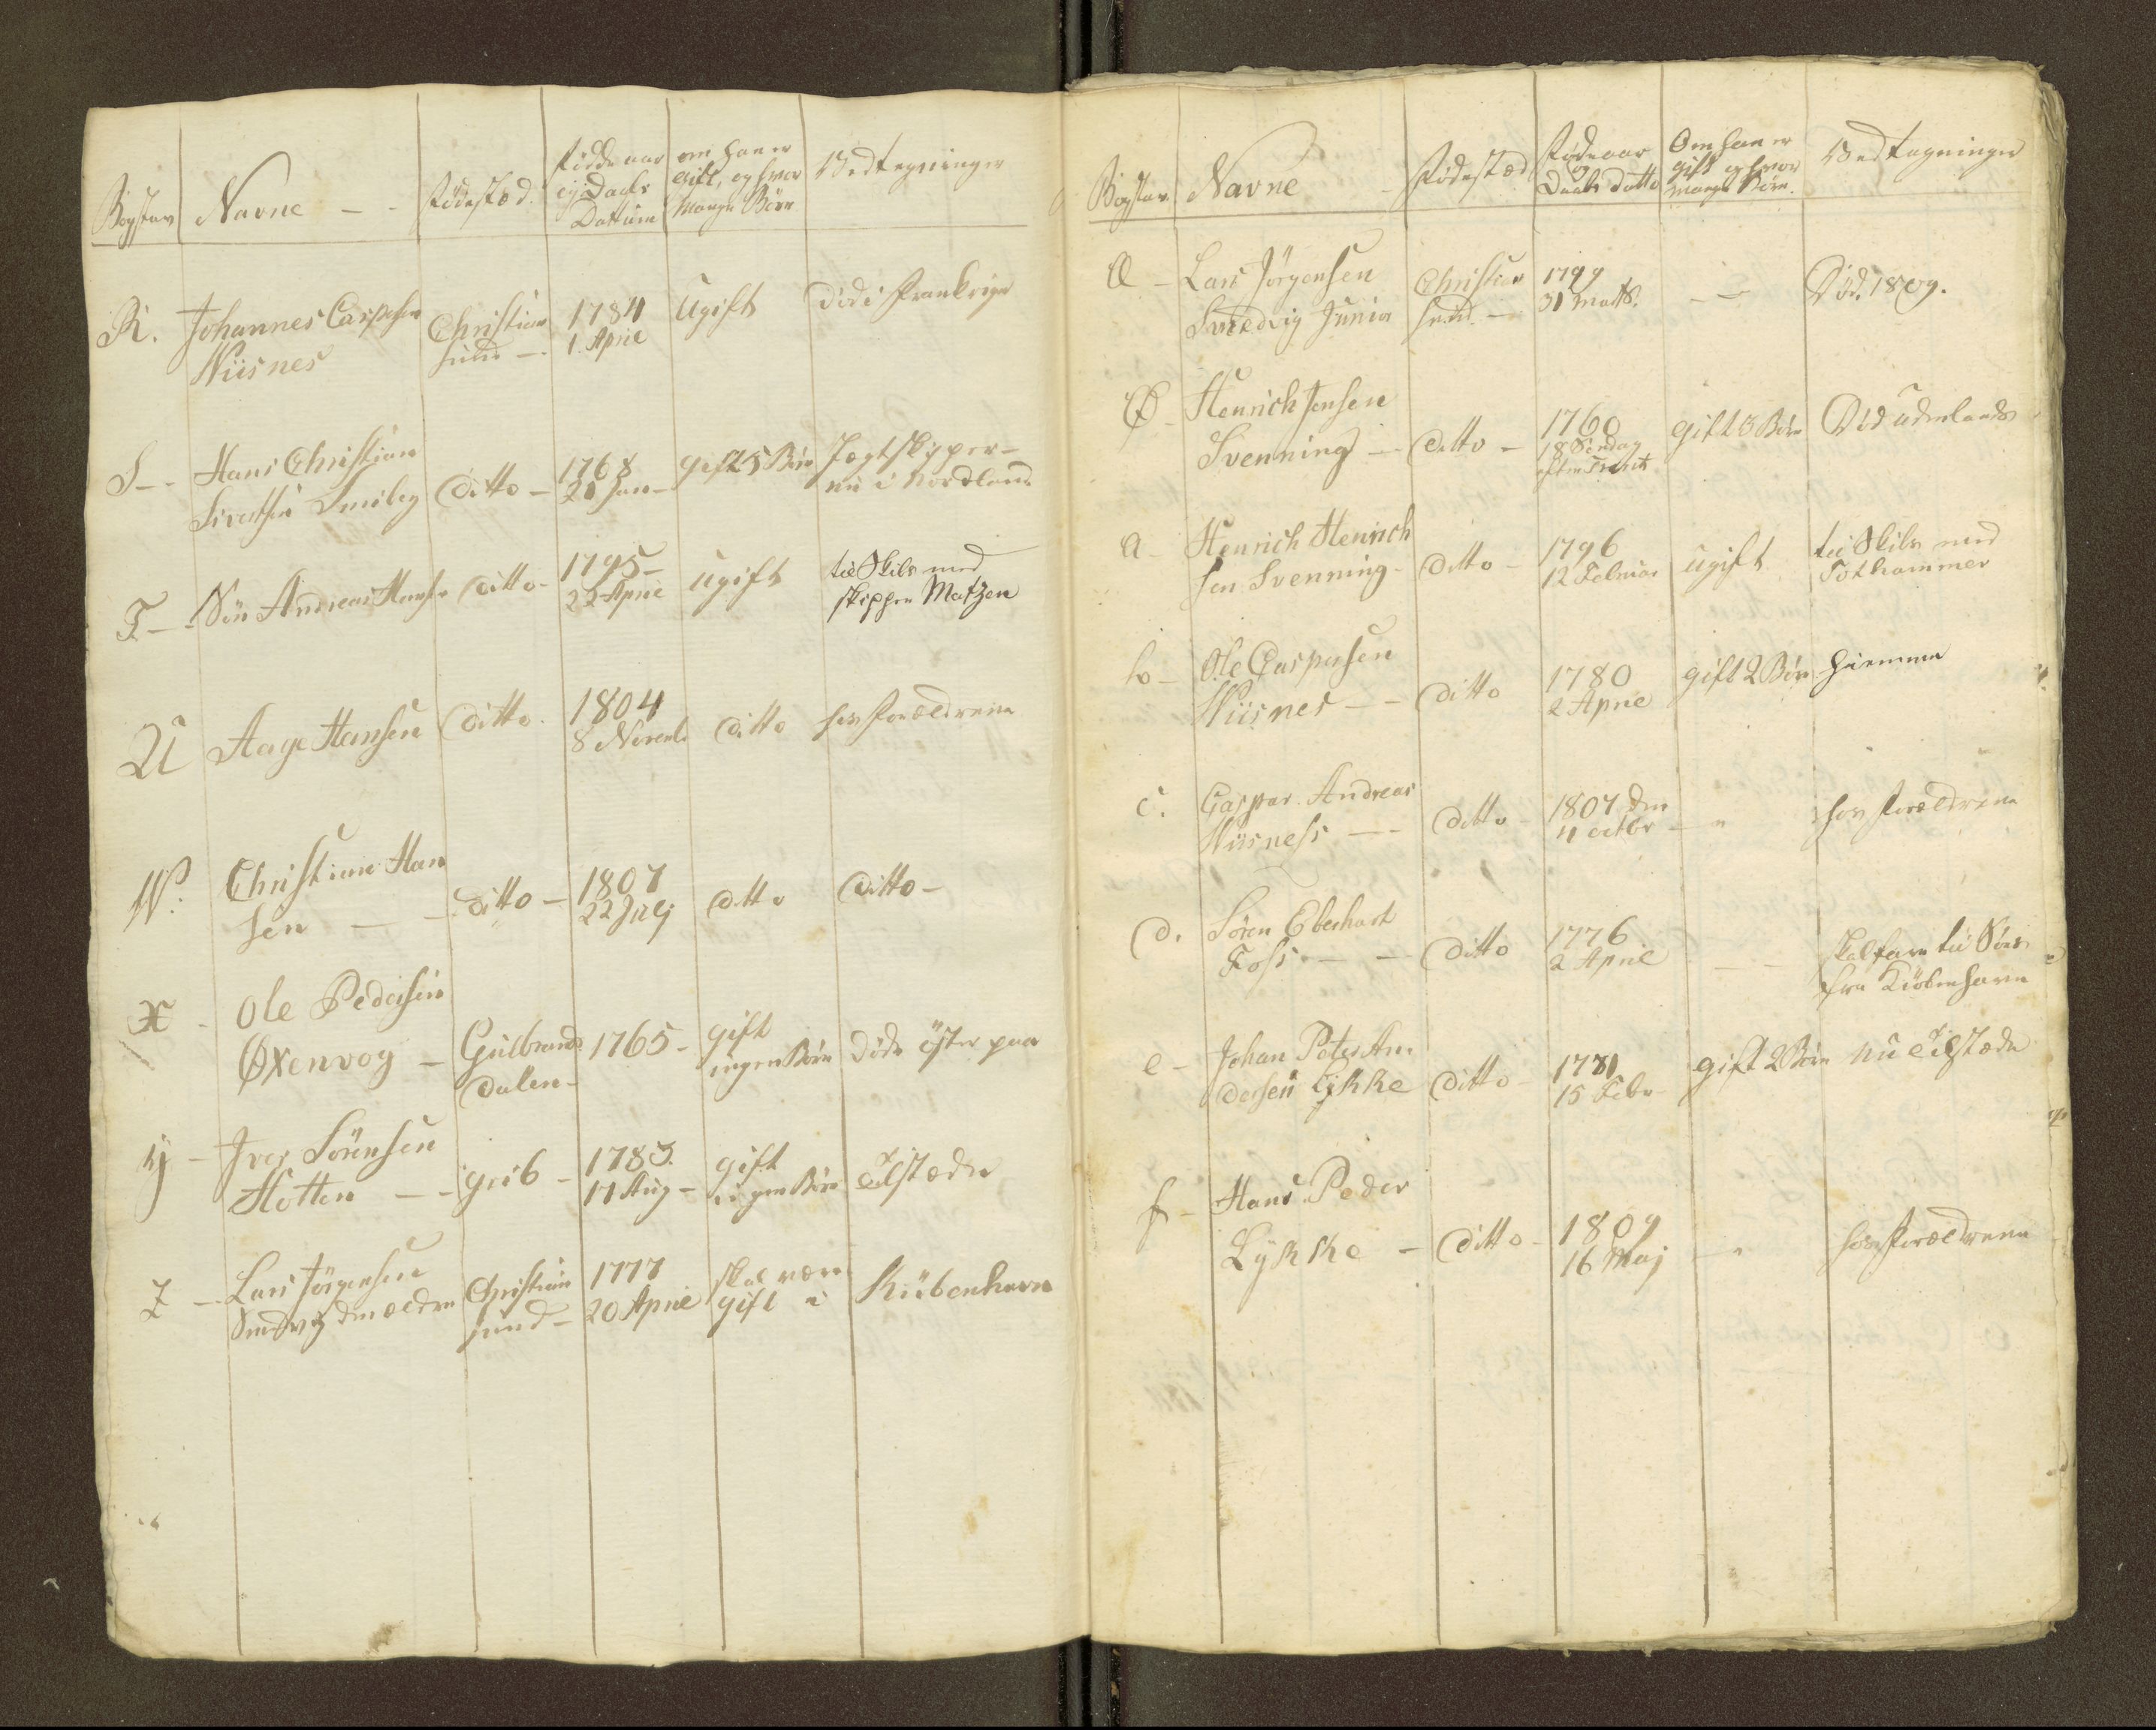 Bogstav
Navne - -
Fødestæd.
Fødde aar
og Dachs
Dattum
om han er
Gift, og hvor
Mange Børn
Vedtegninger
R.
Johannes Caspersen
Niisnes
Christian
sund -
1784
1. April
Ugift
Død i Frankrige
S -
Hans Christian
Smiley
Ditto -
1768
21 Jan -
gift 5 Børn
Jægtskipper -
nu i Nordland
T - -
Søn Andreas Hansen
Ditto -
1795 -
22 April
Ugift
til Skibs med
skipper Matzen
U
Aage Hansen
Ditto.
1804
8 Novemb
Ditto
hos Forældrene
W.
Christian Han
sen -
Ditto -
1807
22 July
Ditto
Ditto -
X -
Ole Pedersen
Øxenvog -
Gulbrands
Dalen -
1765 -
gift
ingen Børn
Døde öster paa
y -
Iver Sörensen
Hotten - -
grib -
1783.
17 Aug -
gift
ingen Børn
tilstæde
Z -
Lars Jörgensen
den ældre
Christian
sund -
1777
20 April
skal være
gift i
Kiøbenhavn
Bogstav
Navne -
Fødestæd
Fødeaar
og
Dachs Datto
Om han er
gift og hvor
mange Børn.
Vedtegninger
Æ -
Lars Jörgensen
Junior
Christian
sund. -
1799
31 Marts.
- -
Død. 1809.
Ø -
Henrich Jensen
Svenning -
Ditto -
1760
18 Søndag
efter Trinit
gift 3 Børn
Død udenlands
a -
Henrich Henrich
sen Svenning -
Ditto -
1796
12 Februar
Ugift
til Skibs med
Tothammer
b -
Ole Caspersen
Niisnes - -
Ditto
1780
2 April
gift 2 Børn
hiemme
c.
Caspar Andreas
Niisness - -
Ditto -
1807 den
4 octbr -
"
hos Forældrene
d.
Sören Eberhart
Foss - -
Ditto
1776
2 April
- -
skal fare til Søes
fra Kiöbenhavn
e -
Johan Peter An
dersen Lykke
Ditto -
1781
15 Febr -
gift 2 Børn
nu tilstæde
f -
Hans Peder
Lykke -
Ditto -
1809
16 Maj
- "
hos Forældrene